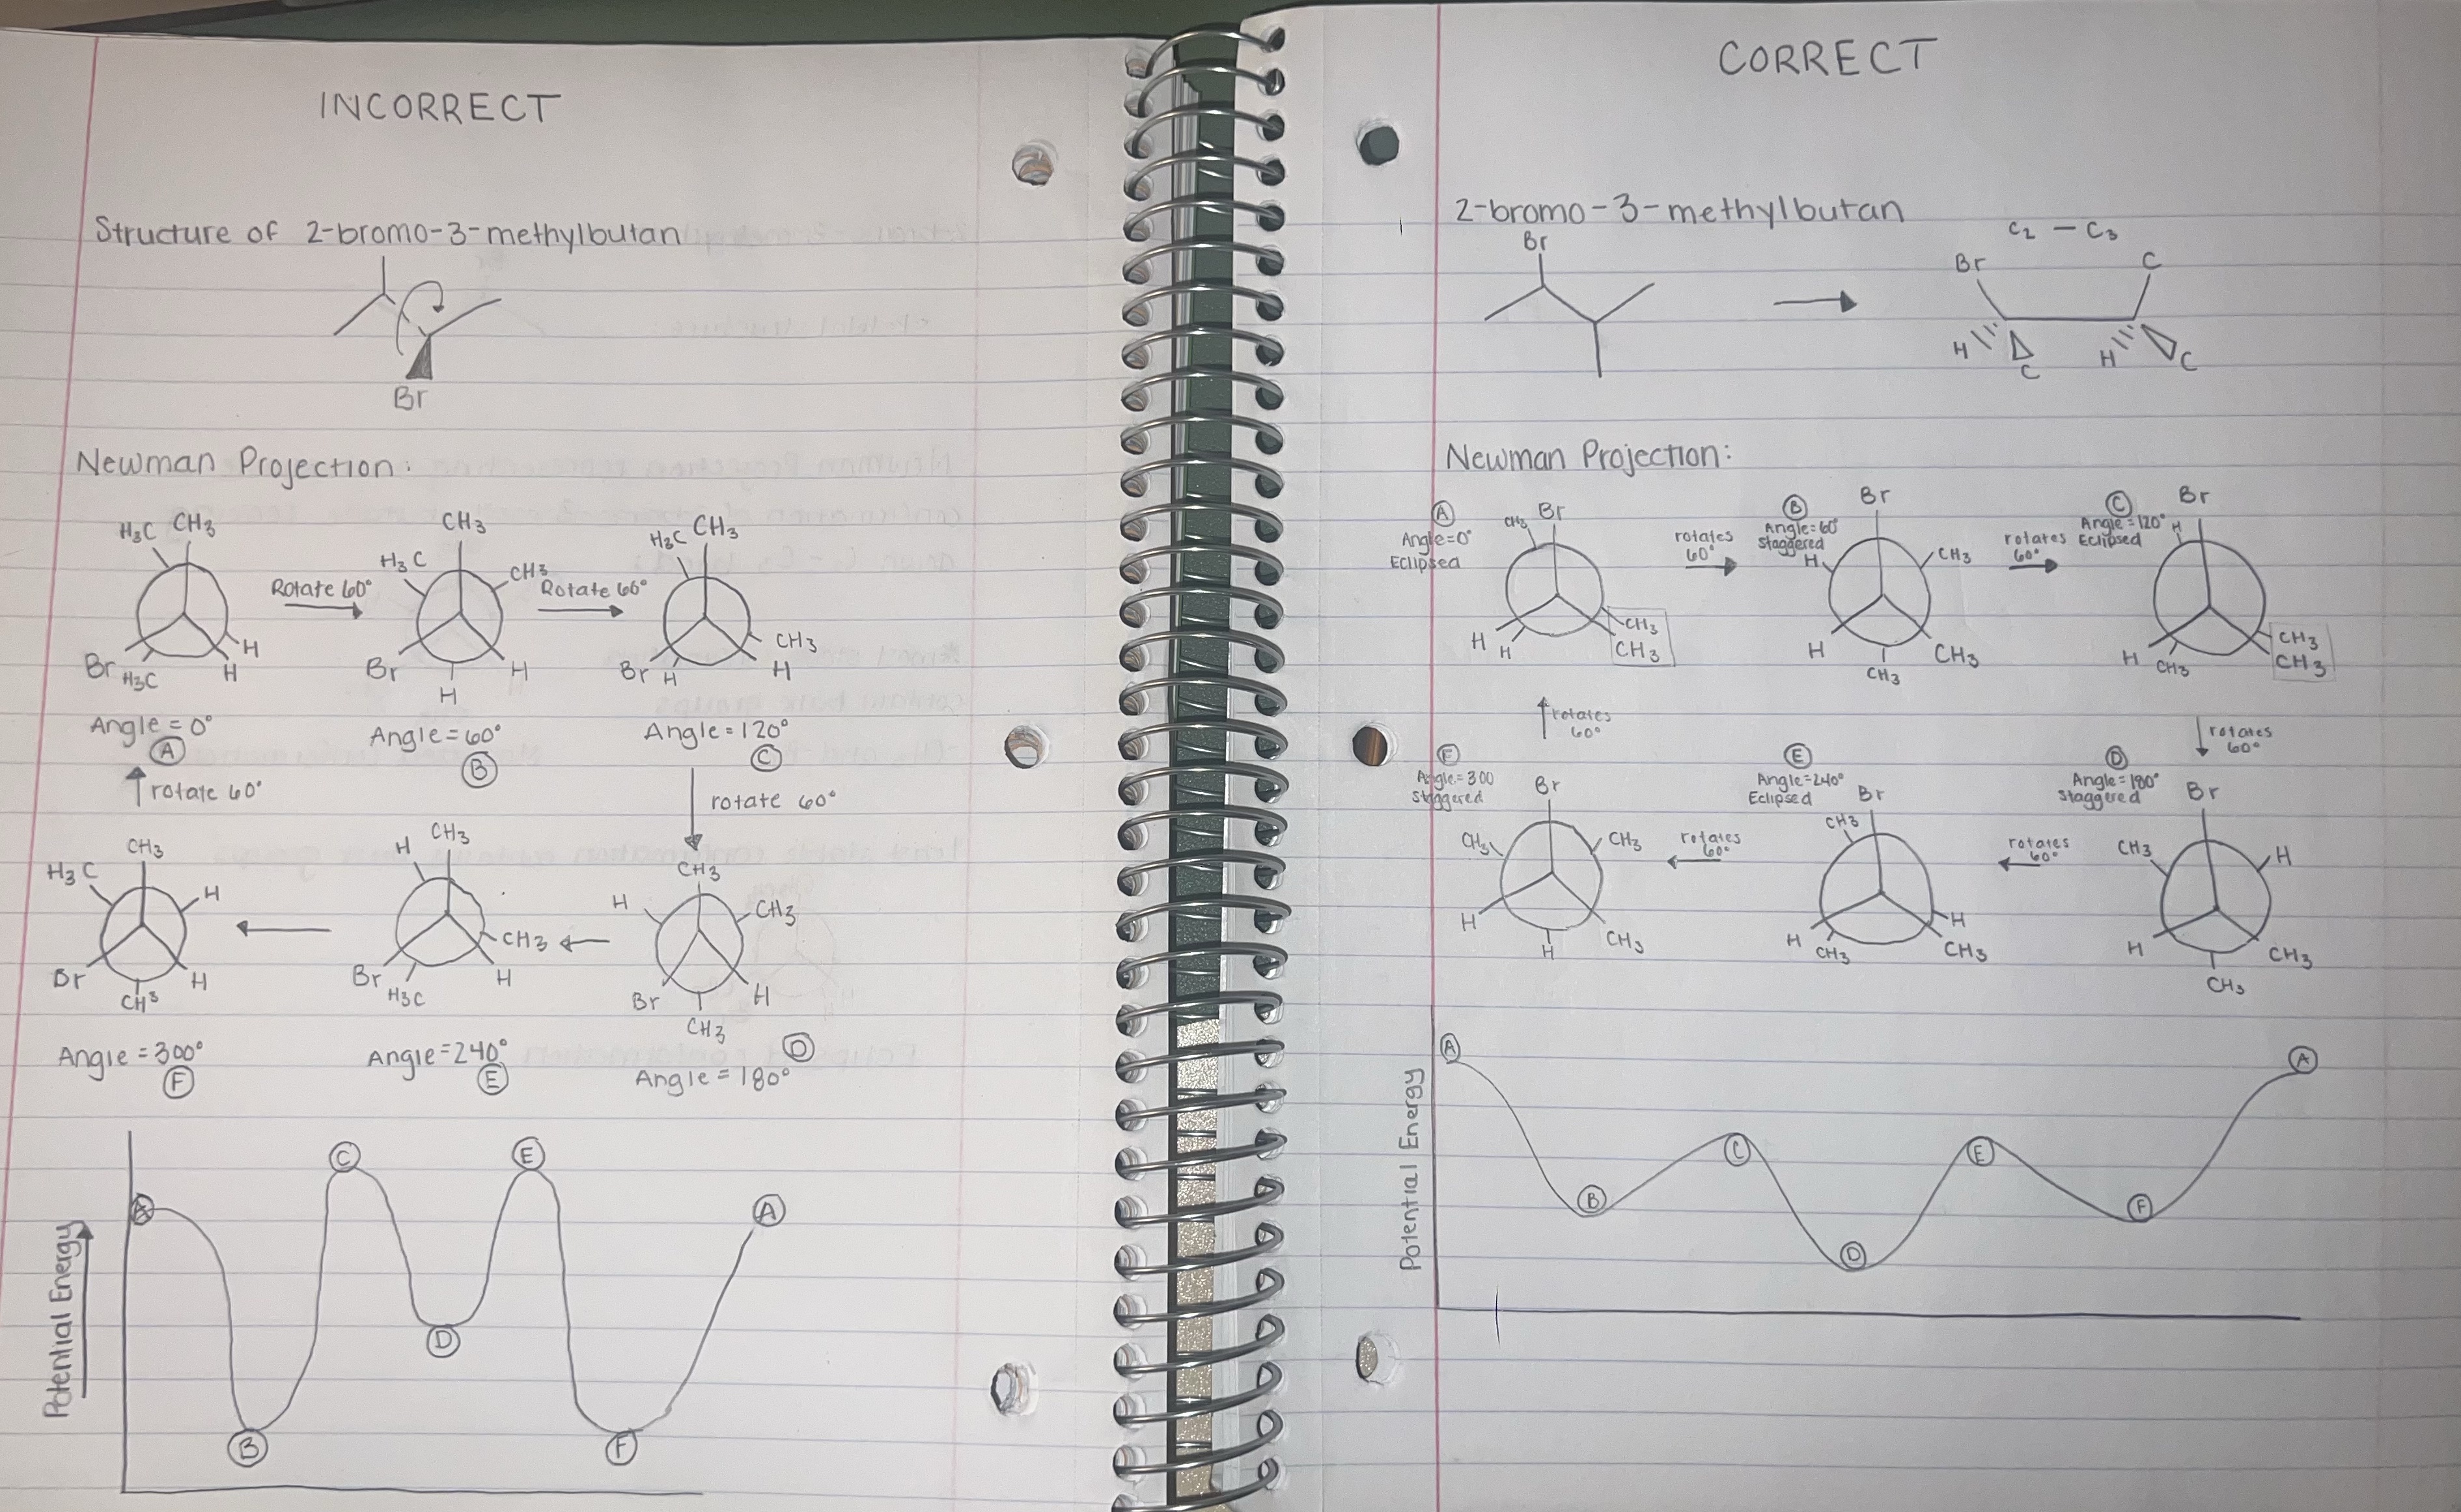 INCORRECT
Structure of 2-bromo-3-methylbutan
Br
Newman Projection:
H₃C CH₃
Br H₃C H H
Angle = 0°
A
Rotate 60°
CH₃
H₃C CH₃
Br H H
Angle = 60°
B
Rotate 60°
H₃C CH₃
CH₃
Br H H
Angle = 120°
C
rotate 60°
rotate 60°
CH₃
H₃C H
Br CH³ H
Angle = 300°
F
H CH₃
CH₃
Br H₃C H
Angle = 240°
E
CH₃
H CH₃
Br CH₃ H
D
Angle = 180°
Potential Energy
A B C D E F A
CORRECT
2-bromo-3-methylbutan
Br
C₂ — C₃
Br C
H C H C
Newman Projection:
A
Angle=0°
Eclipsed
CH₃ Br
H H CH₃
CH₃
rotates
60°
B
Angle=60°
Staggered
Br
H CH₃
H CH₃ CH₃
rotates
60°
C
Angle=120°
Eclipsed
H Br
H CH₃ CH₃
CH₃
rotates
60°
rotates
60°
F
Angle=300
Staggered
Br
CH₃ CH₃
H H CH₃
rotates
60°
E
Angle=240°
Eclipsed
Br
CH₃
H
H CH₃ CH₃
rotates
60°
D
Angle=180°
Staggered
Br
CH₃ H
H CH₃ CH₃
Potential Energy
A B C D E F A